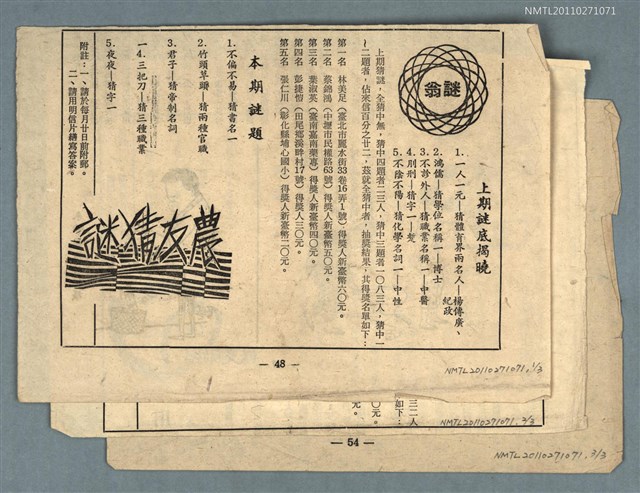 NMTL20110271071
謎翁
上期謎底揭曉
1. 一人一元—猜體育界兩名人—楊傳廣、
紀政
2. 鴻儒—猜學位名稱一—博士
3. 不診外人—猜職業名稱一—中醫
4. 別刑—猜字一—
5. 不陰不陽—猜化學名詞一—中性
上期猜謎，全猜中無，猜中四題者二三人，猜中三題者一〇八三人，猜中一
～二題者，佔來信百分之廿二，茲就全猜中者，抽獎結果，其得獎名單如下：
第一名 林美足（臺北市麗水街33巷16弄1號）得獎人新臺幣六〇元。
第二名 蔡錦鴻（中壢市民權路63號）得獎人新臺幣五〇元。
第三名 葉淑英（臺南嘉南藥專）得獎人新臺幣四〇元。
第四名 彭捷惜（田尾鄉溪畔村17號）得獎人三〇元。
第五名 張仁川（彰化縣埔心國小）得獎人新臺幣二〇元。
本期謎題
1. 不偏不易—猜書名一
2. 竹頭草頭—猜兩種官職
3. 君子—猜帝制名詞
一4. 三把刀—猜三種職業
5. 夜夜—猜字一
附註：一、請於每月廿日前附郵。
二、請用明信片繕寫答案。
農友猜謎
— 48 —
NMTL20110271071, 1/3
三二人
如下：
〇元。
元。
NMTL20110271071, 2/3
— 54 —
NMTL20110271071, 3/3